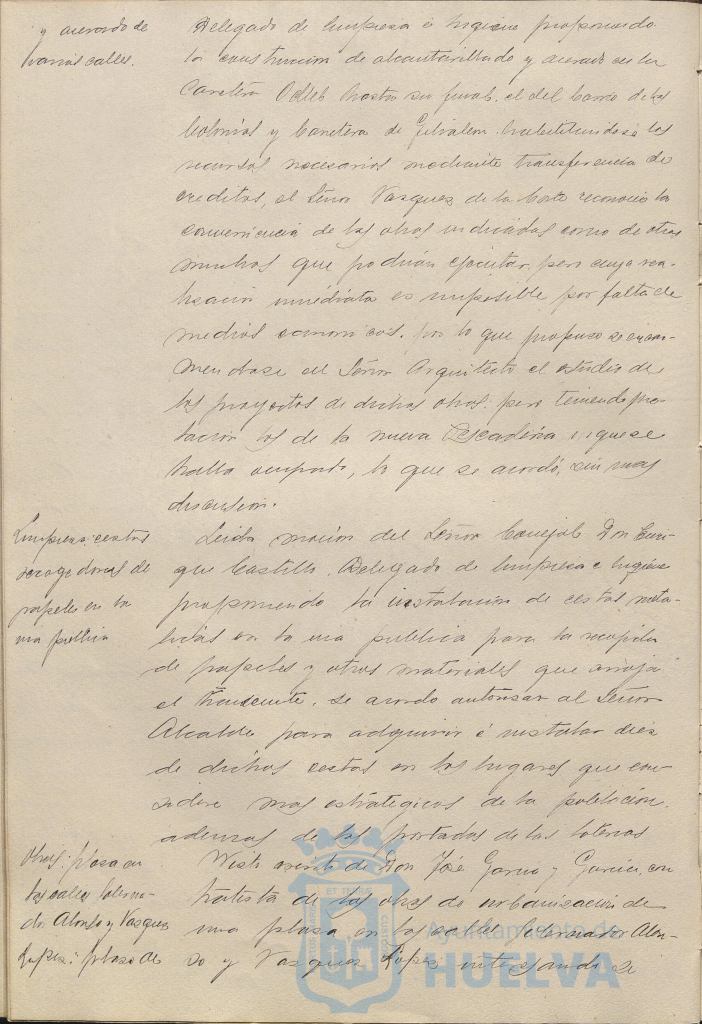 y acerado de
varias calles.
Delegado de limpieza é higiene proponiendo
la construccion de alcantarillado y acerado en la
Carretera Odiel hasta su final, el del barrio de las
Colonias y Carretera de Gibraleon habilitandose los
recursos necesarios mediante transferencia de
creditos, el Señor Vazquez de la Corte reconocio la
conveniencia de las obras indicadas como de otras
muchas que podrian ejecutar, pero cuya rea-
lizacion inmediata es imposible por falta de
medios economicos, por lo que propuso se encar-
mendase al Señor Arquitecto el estudio de
los proyectos de dichas obras; pero teniendo pre-
lacion los de la nueva Pescaderia en que se
halla ocupado, lo que se acordó, sin mas
discusion.
Limpieza: cestas
recogedoras de
papeles en la
via publica
Leida mocion del Señor Concejal Don Enri-
que Castillo, Delegado de limpieza e higiene
proponiendo la instalacion de cestas meta-
licas en la via publica para la recogida
de papeles y otros materiales que arroja
el transeunte, se acordo autorizar al Señor
Alcalde para adquirir é instalar diez
de dichas cestas en los lugares que con-
sidere mas estrategicos de la poblacion,
ademas de las portadas de las loterias
Obras: plaza en
las calles Goberna-
dor Alonso y Vazquez
Lopez: plazo de
Visto escrito de Don José Garcia y Garcia, con-
tratista de las obras de urbanizacion de
una plaza en las calles Gobernador Alon-
so y Vazquez Lopez interesando se
Ayuntamiento de
HUELVA